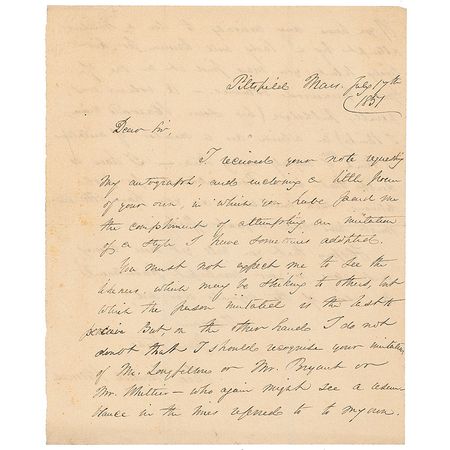 Pittsfield Mass. July 17th
1851
Dear Sir,
I received your note requesting
my autograph, and inclosing a little poem
of your own, in which you have paid me
the compliment of attempting an imitation
of a style I have sometimes adopted.
You must not expect me to see the
likeness, which may be striking to others, but
which the person imitated is the last to
perceive But, on the other hand I do not
doubt that I should recognise your imitation
of Mr. Longfellow or Mr. Bryant or
Mr. Whittier — who again might see a resem
blance in the lines referred to to my own.